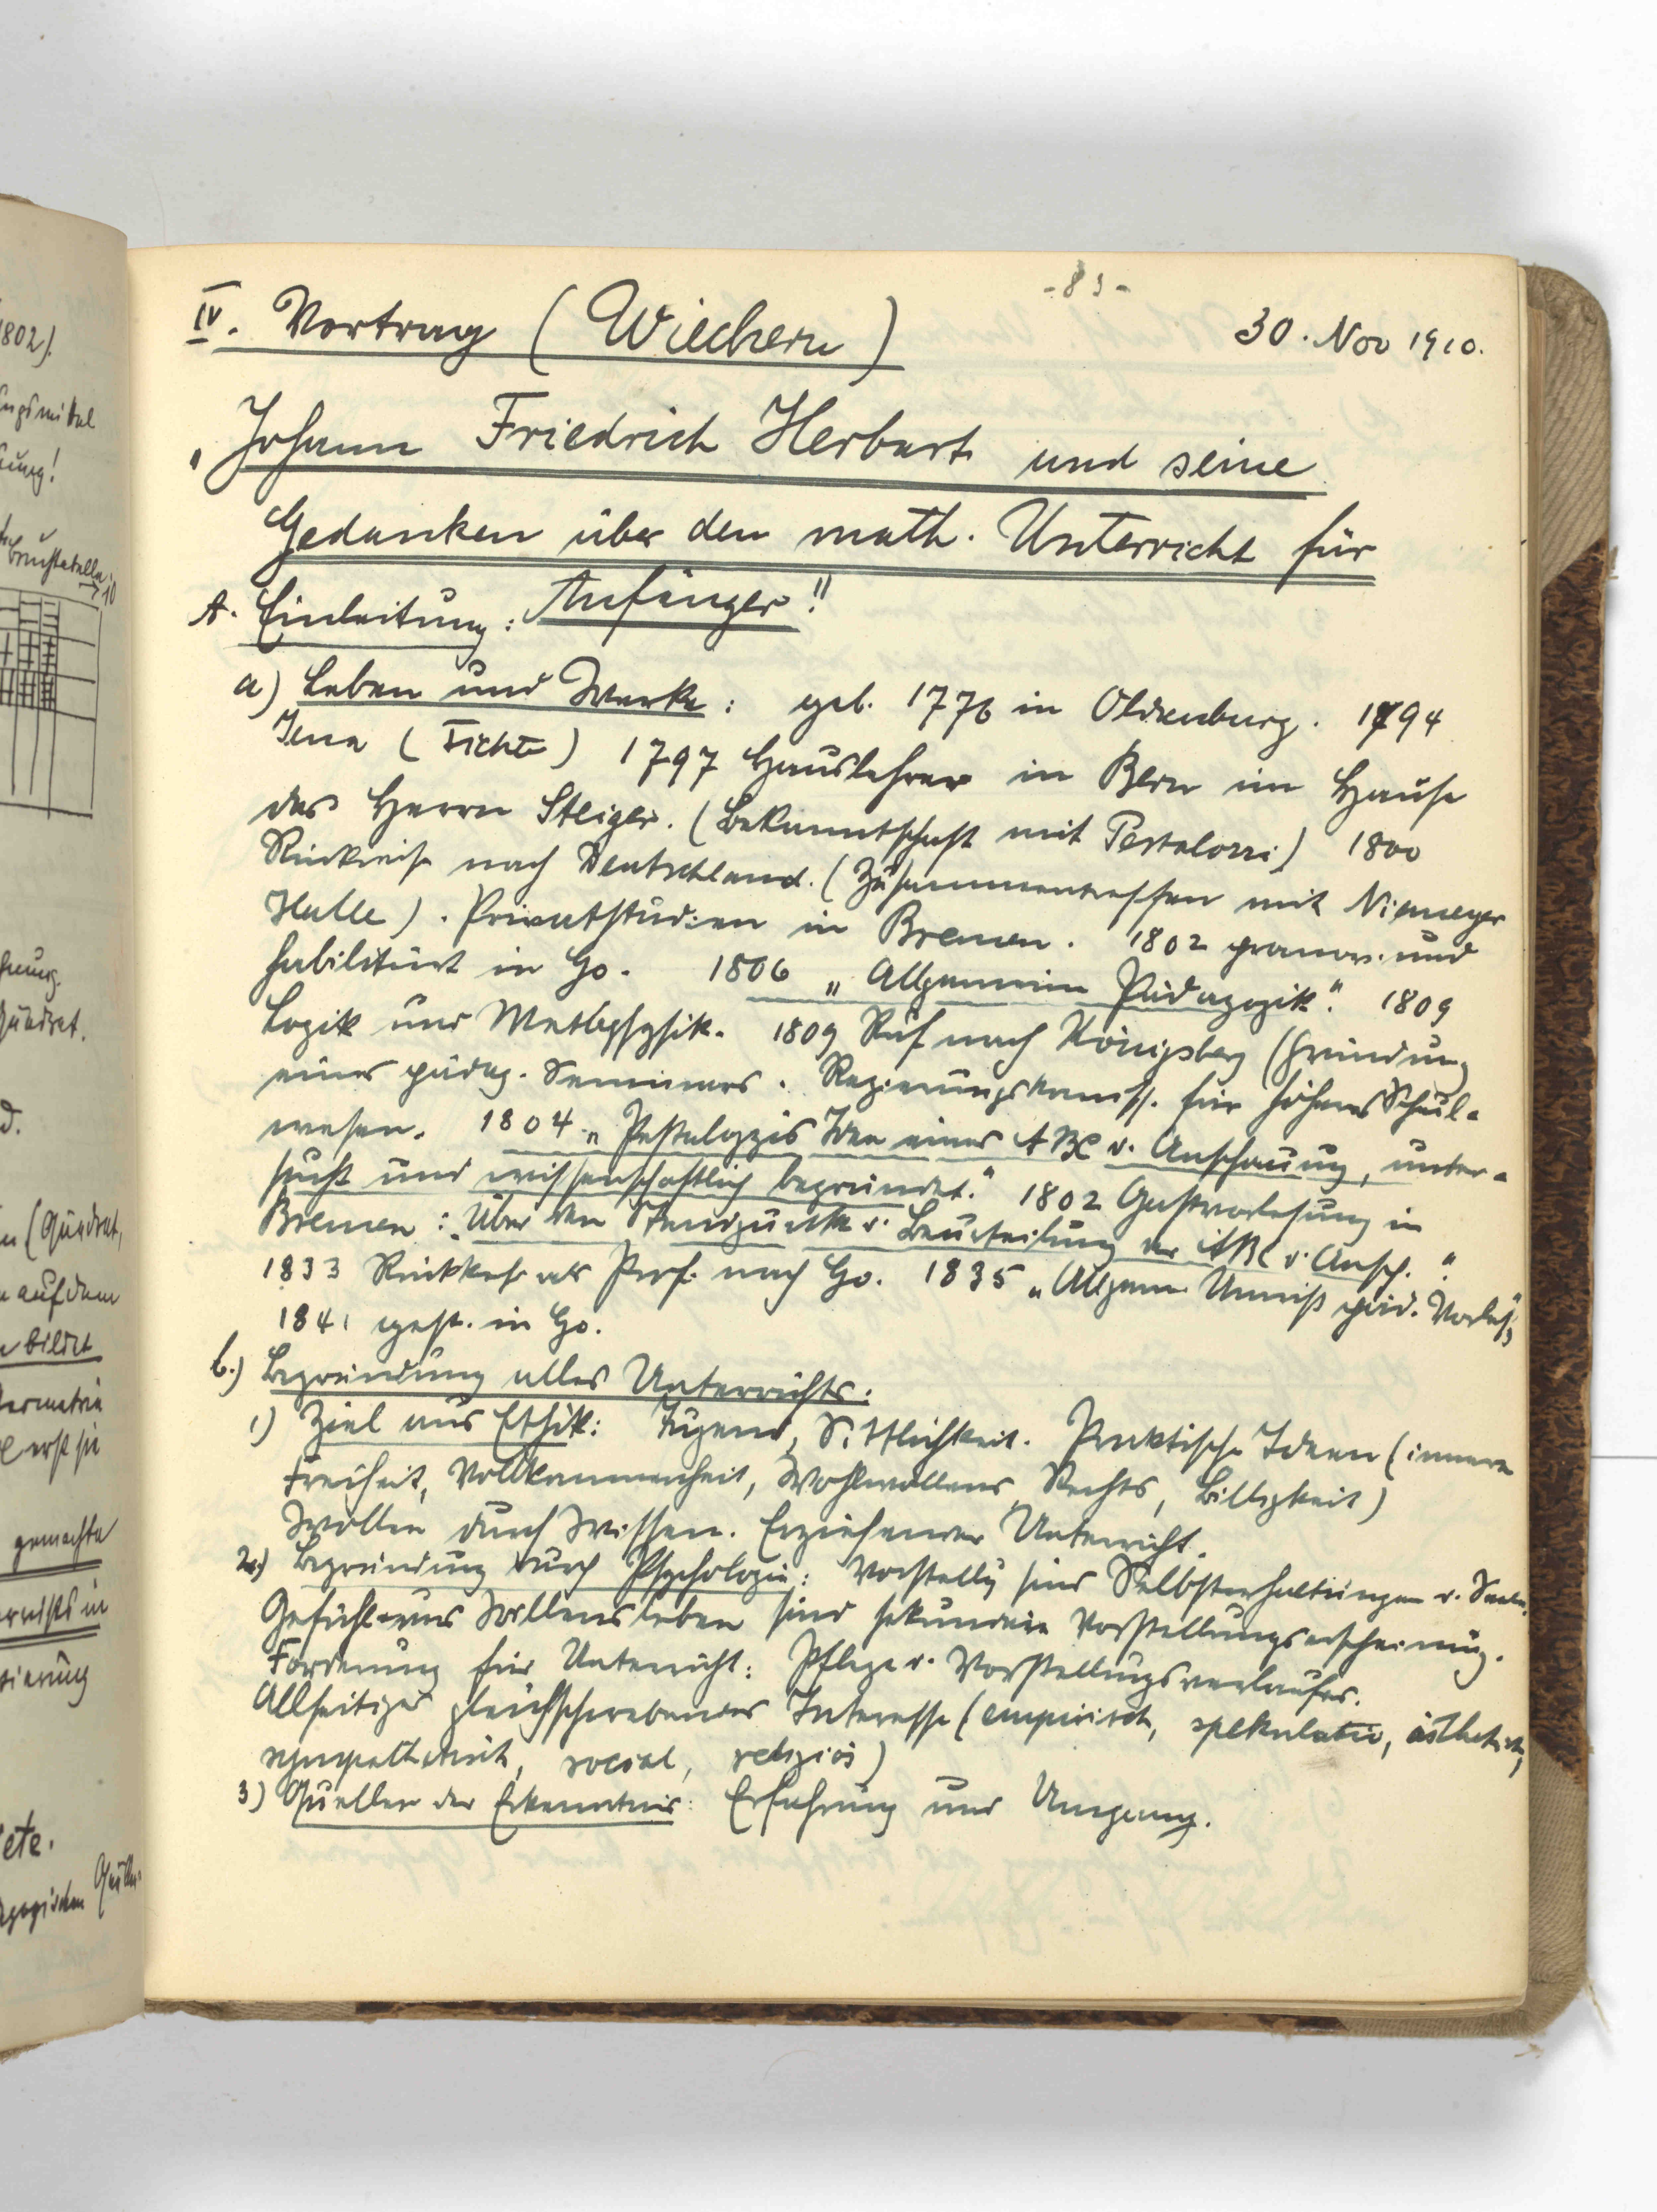 1802).
- 83 -
IV. Vortrag (Wiechern)
30. Nov 1910.
„Johann Friedrich Herbart und seine
Gedanken über den math. Unterricht für
Anfänger!"
A. Einleitung:
a) Leben und Werke: geb. 1776 in Oldenburg. 1794
Jena (Fichte) 1797 Hauslehrer in Bern im Hause
des Herrn Steiger. (Bekanntschaft mit Pestalozzi) 1800
Rückreise nach Deutschland. (Zusammentreffen mit Niemeyer
Halle). Privatstudien in Bremen. 1802 promov. und
habilitiert in Gö. 1806 „Allgemeine Pädagogik". 1809
Logik und Methaphysik. 1809 Ruf nach Königsberg (Gründung
eines pädag. Seminars. Regierungskomiss. für höheres Schul-
wesen. 1804 „Pestalozzis Idee eines ABC d. Anschauung, unter-
sucht und wissenschaftlich begründet." 1802 Gastvorlesung in
Bremen: „Über den Standpunkt d. Beurteilung des ABC d. Ansch."
1833 Rückkehr als Prof. nach Gö. 1835 „Allgem. Umriß päd. Vorles."
1841 gest. in Gö.
b.) Begründung alles Unterrichts:
1) Ziel aus Ethik: Tugend, Sittlichkeit. Praktische Ideen (innere
Freiheit, Vollkommenheit, Wohlwollens, Rechts, Billigkeit)
Wollen durch Wissen. Erziehender Unterricht.
2.) Begründung durch Psychologie: Vorstellg sind Selbsterhaltungen d. Seele.
Gefühl- und Willensleben sind sekundäre Vorstellungserscheinung.
Forderung für Unterricht: Pflege d. Vorstellungsverlaufes.
Allseitiges gleichschwebendes Interesse (empirisch, spekulativ, ästhetisch,
sympathetisch, social, religiös)
3) Quellen der Erkenntnis: Erfahrung und Umgang.